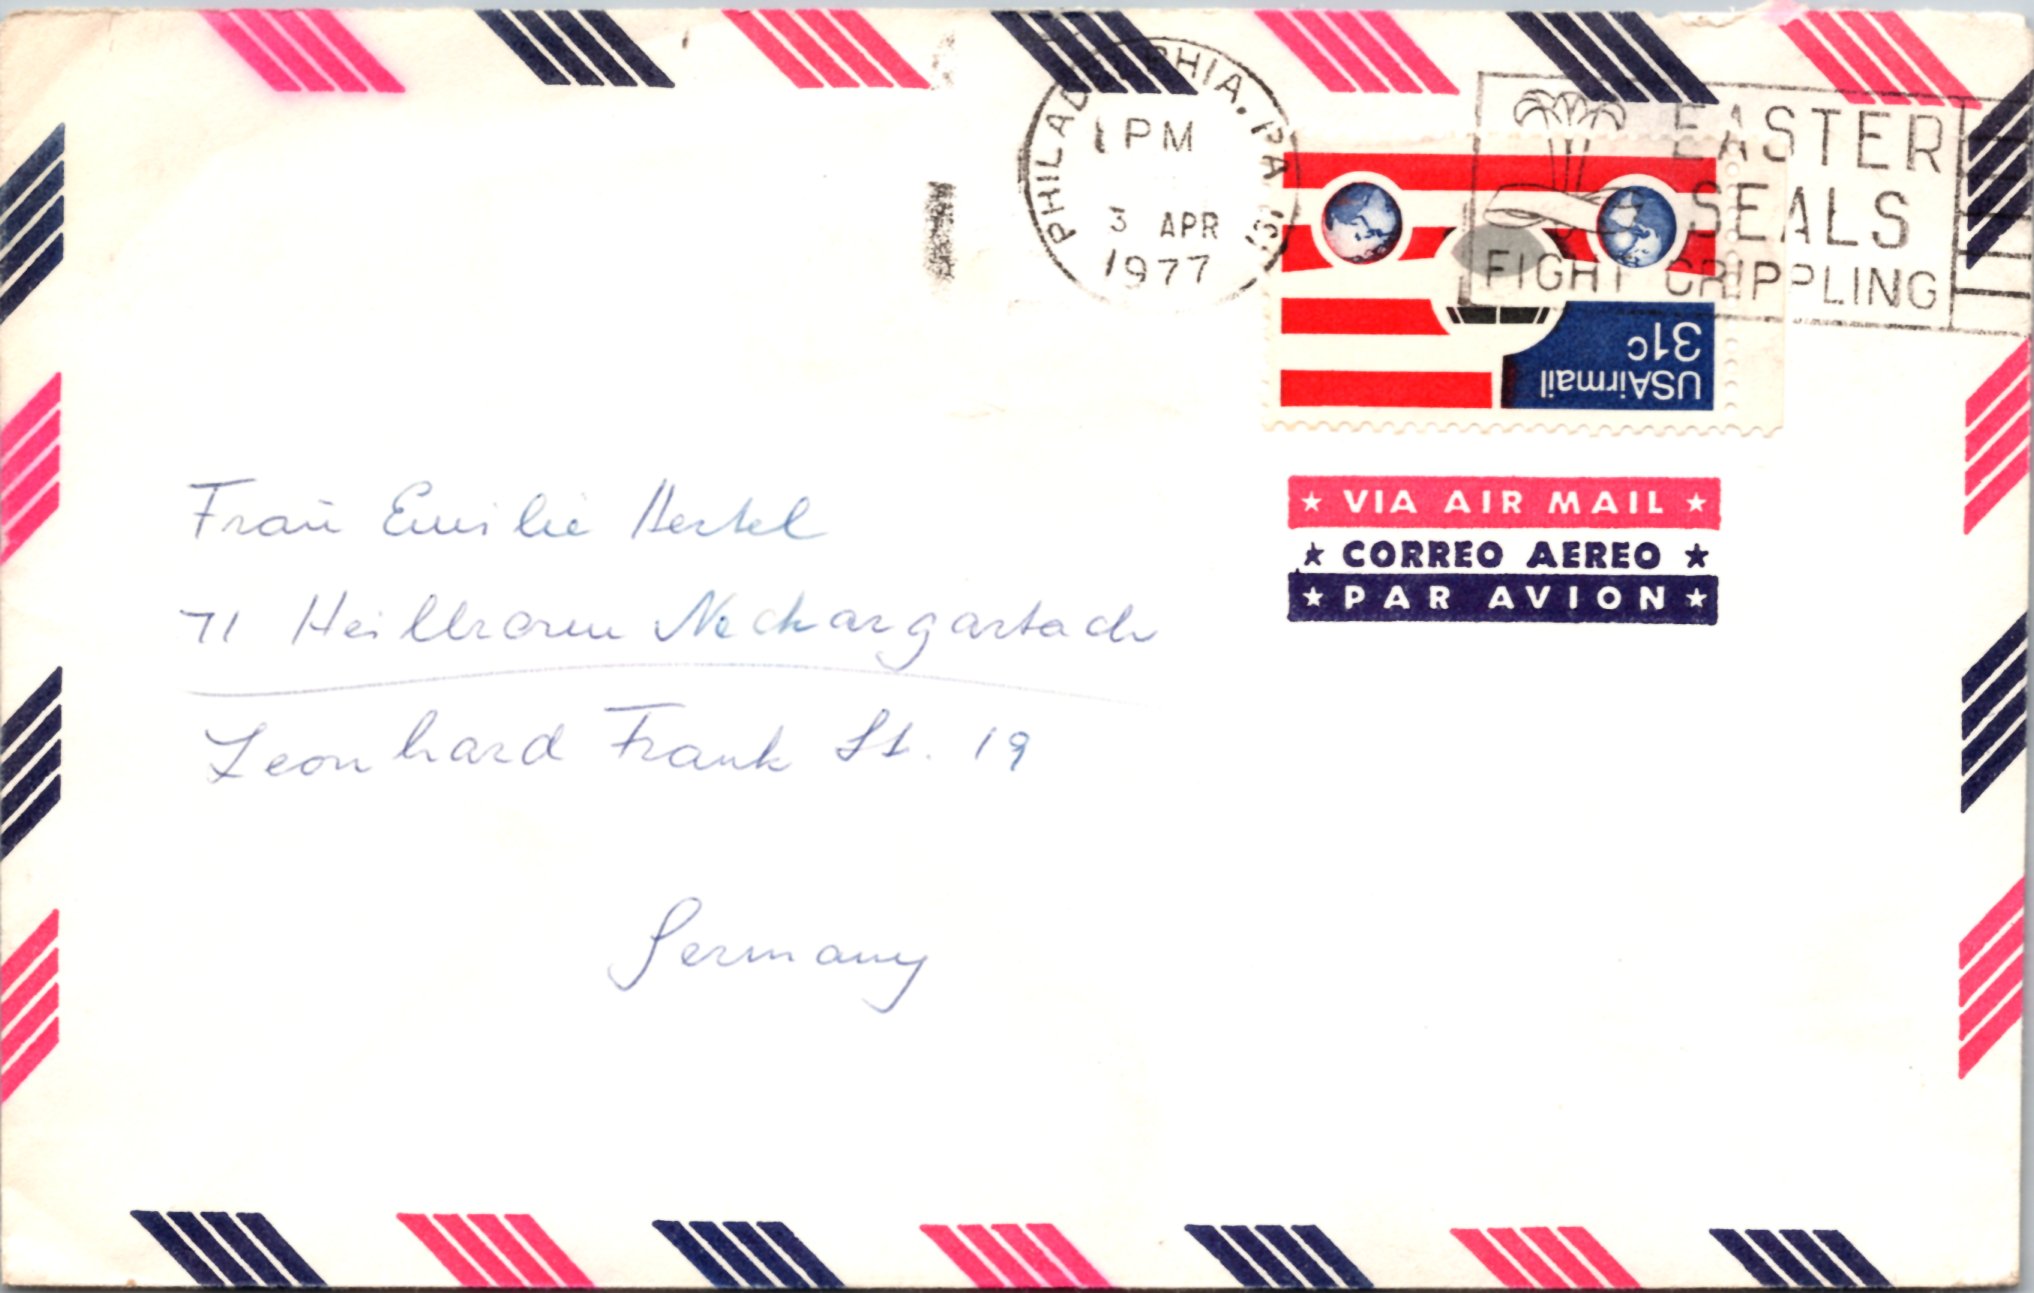 PHILADELPHIA, PA
1 PM
3 APR
1977
EASTER
SEALS
FIGHT CRIPPLING
USAirmail
31c
★ VIA AIR MAIL ★
★ CORREO AEREO ★
★ PAR AVION ★
Frau Emilie Hertel
71 Heilbronn Neckargartach
Leonhard Frank St. 19
Germany